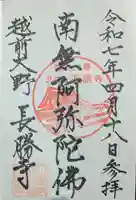 令和七年四月十八日参拝
南無阿弥陀佛
越前大野 長勝寺